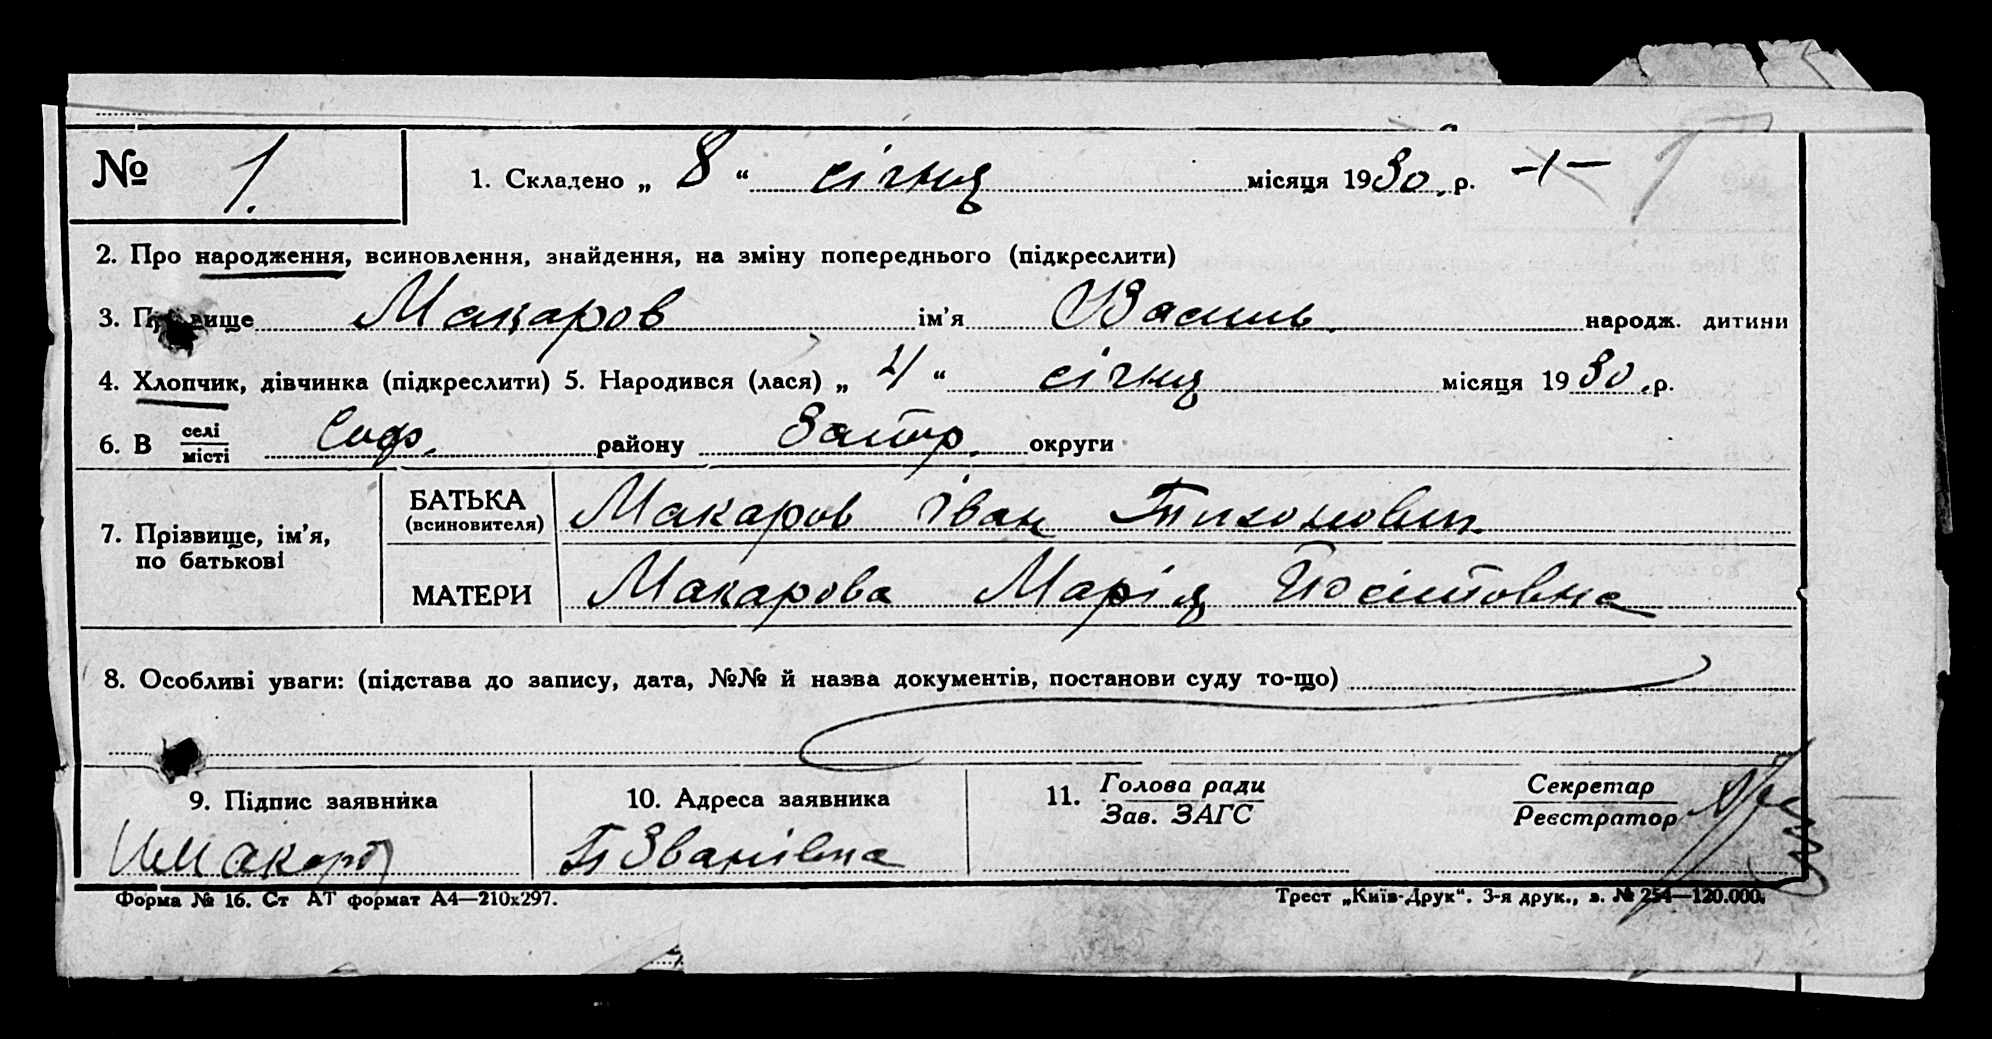 № 1.
1. Складено „ 8 “ січня місяця 1930. р. -1-
2. Про народження, всиновлення, знайдення, на зміну попереднього (підкреслити)
3. Прізвище Макаров ім'я Василь народж. дитини
4. Хлопчик, дівчинка (підкреслити) 5. Народився (лася) „ 4 “ січня місяця 1930. р.
6. В селі
місті Соф. району Запор. округи
7. Прізвище, ім'я, по батькові
БАТЬКА (всиновителя) Макаров Іван Тихонович
МАТЕРИ Макарова Марія Йосіповна
8. Особливі уваги: (підстава до запису, дата, №№ й назва документів, постанови суду то-що)
9. Підпис заявника
10. Адреса заявника
11. Голова ради
Зав. ЗАГС
Секретар
Реєстратор
ИМакаров
Званівка
Форма № 16. Ст АТ формат А4—210х297.
Трест „Київ-Друк“. 3-я друк., з. № 254—120.000.